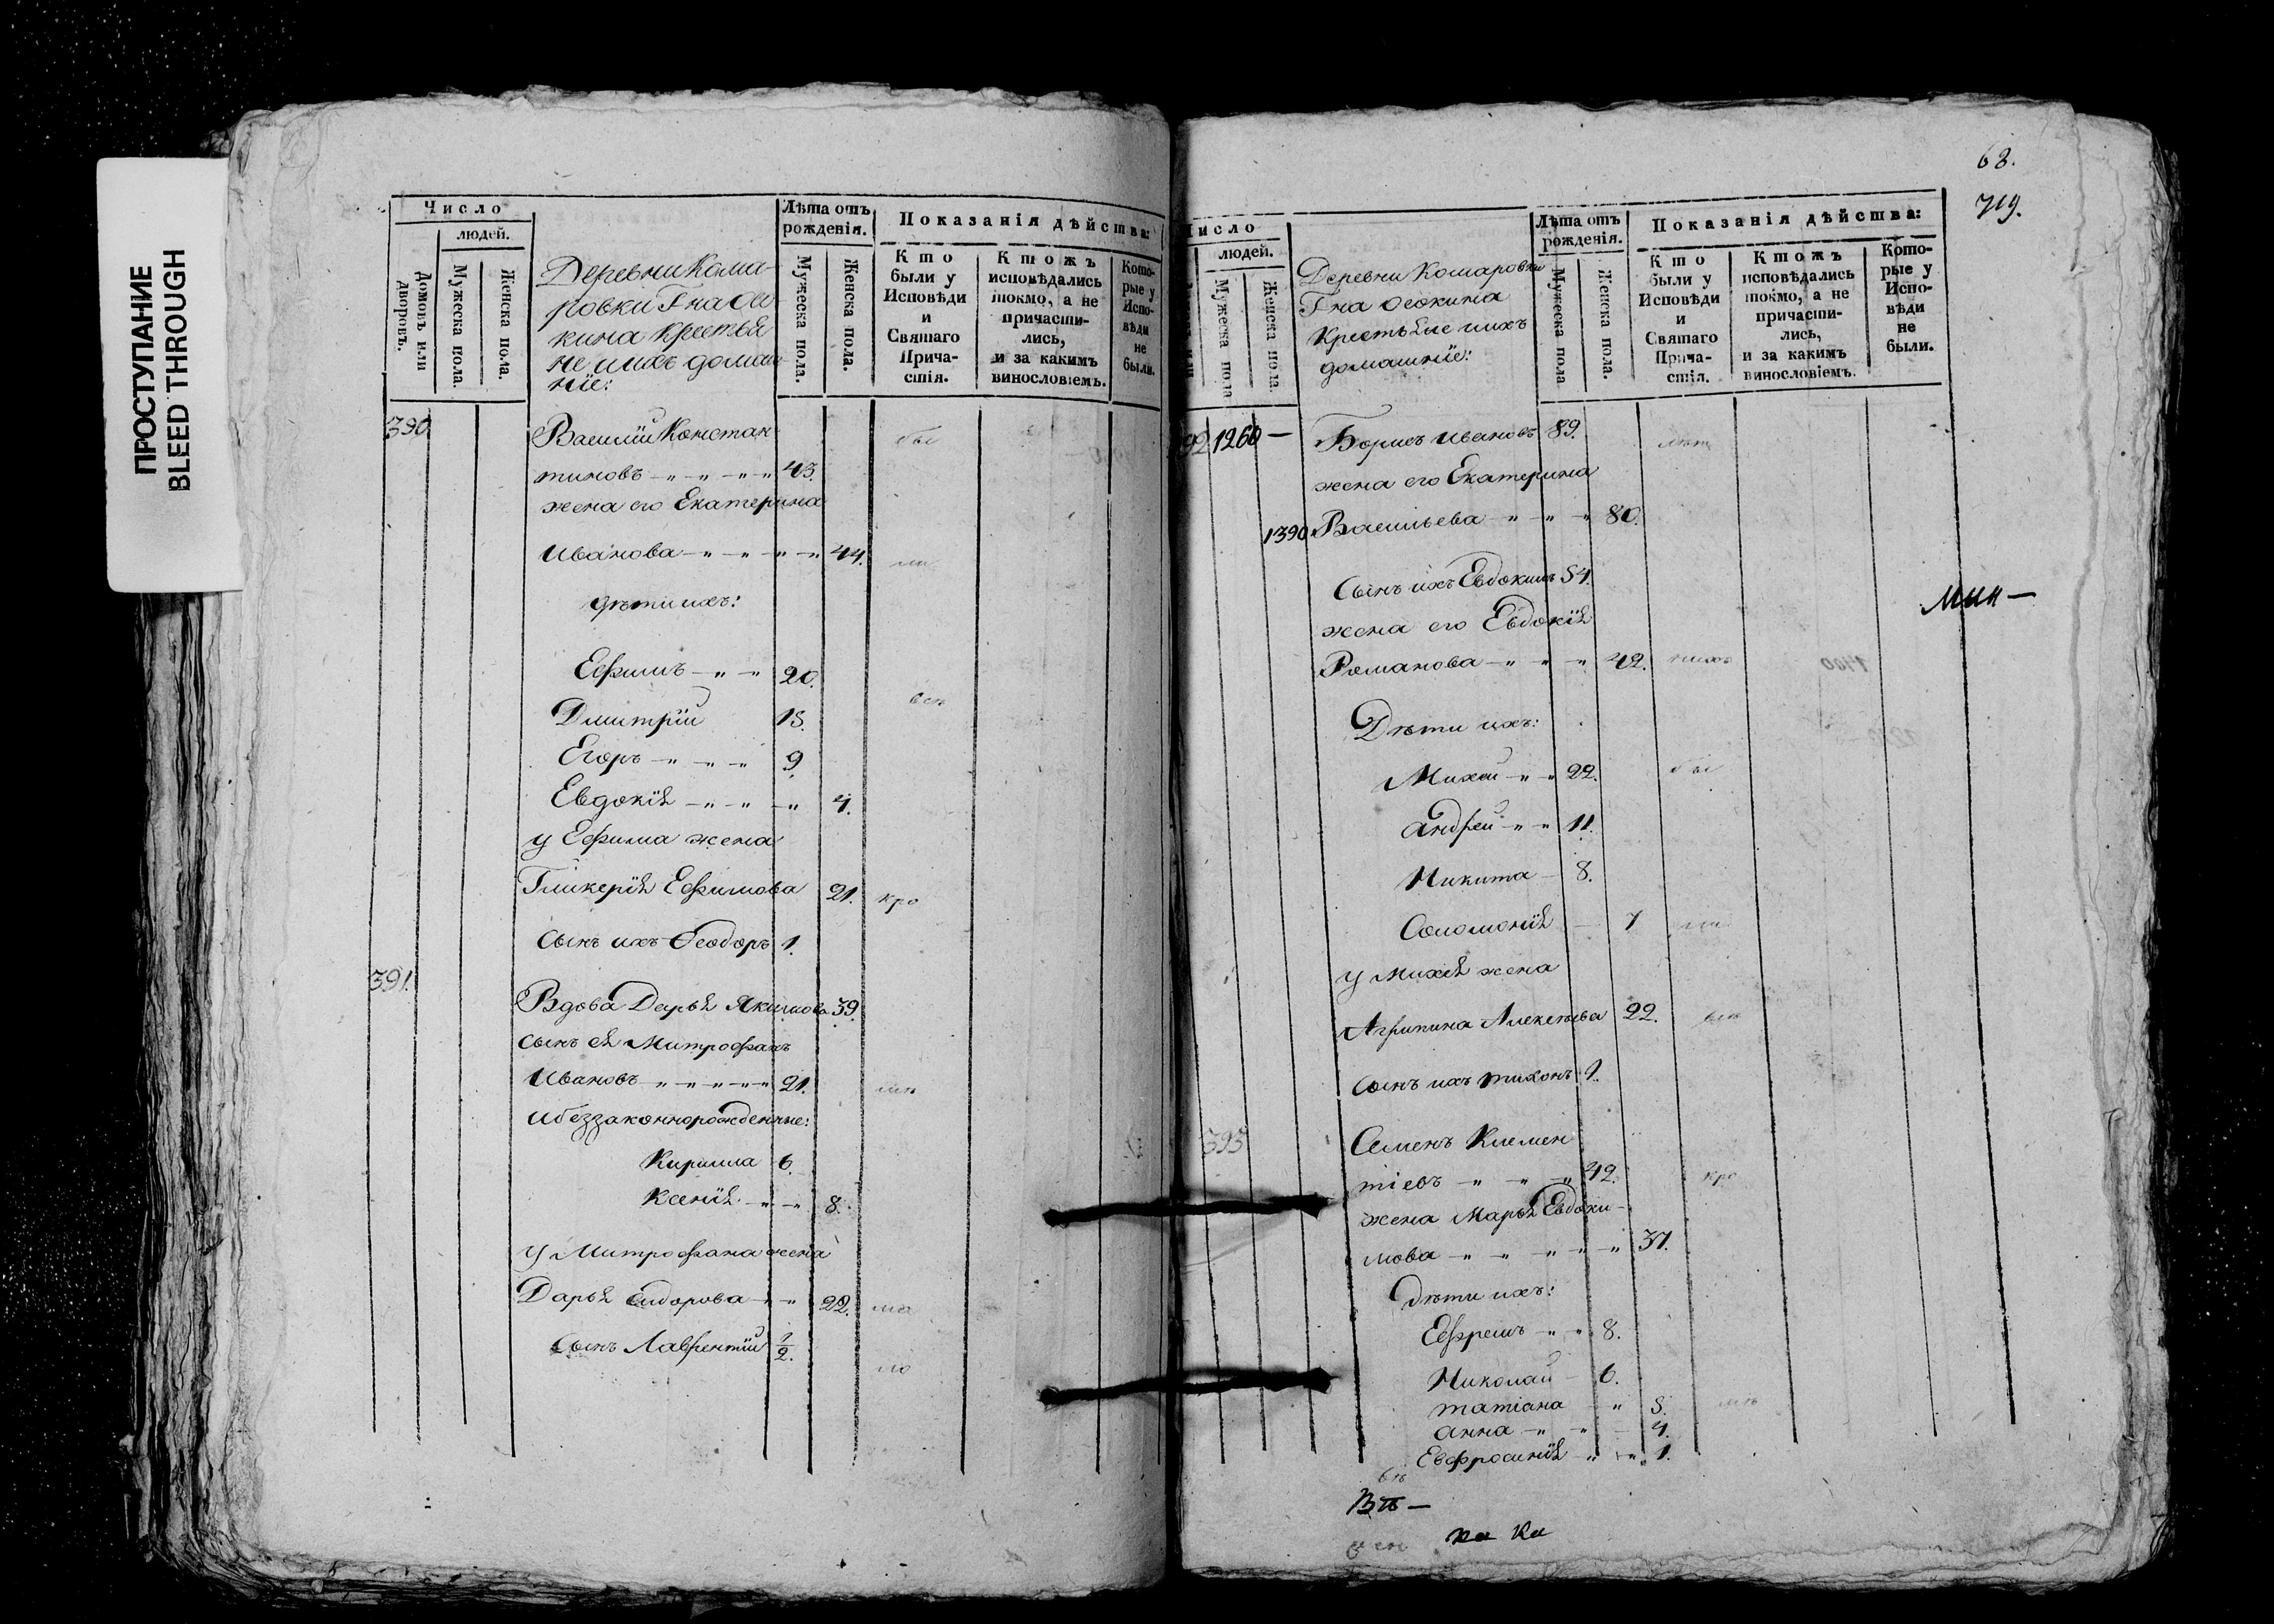 ПРОСТУПАНИЕ
BLEED THROUGH
Число
людей.
Домовъ или дворовъ.
Мужеска пола.
Женска пола.
Деревни Кома-
ровки Гна Осо
кина крестья
не и ихъ домаш-
ніе:
Лѣта отъ
рожденія.
Мужеска пола.
Женска пола.
Показанія дѣйства:
Кто
были у
Исповѣди
и
Святаго
Прича-
стія.
Ктожъ
исповѣдались
токмо, а не
причасти-
лись,
и за какимъ
винословіемъ.
Кото-
рые у
Испо-
вѣди
не
были.
390 Василій Констан бы
тиновъ 43.
жена его Екатерина
Иванова 44. ли
дѣти ихъ:
Ефимъ 20.
Дмитрій 15.
Егоръ 9
Евдокія 4.
у Ефима жена
Гликерія Ефимова 21. кро
Сынъ ихъ Ѳеодоръ 1.
391. Вдова Дарья Якимова 39.
сынъ ея Митрофанъ
Ивановъ 21.
и беззаконнорожденные:
Кирилла 6.
Ксенія 8.
у Митрофана жена
Дарья Сидорова 22. ма
Сынъ Лаврентій 1/2.
ло
68.
719.
Число
людей.
Мужеска пола
Женска пола.
Деревни Комаровки
Гна Осокина
Крестьяне и ихъ
домашніе:
Лѣта отъ
рожденія.
Мужеска пола
Женска пола.
Показанія дѣйства:
Кто
были у
Исповѣди
и
Святаго
Прича-
стія.
Ктожъ
исповѣдались
токмо, а не
причасти-
лись,
и за какимъ
винословіемъ.
Кото-
рые у
Испо-
вѣди
не
были.
92 1260 — Борисъ Ивановъ 89.
жена его Екатерина
1390 Васильева 80.
Сынъ ихъ Евдокимъ 54.
жена его Евдокія
Романова 42.
Дѣти ихъ:
Михей 22. бы
Андрей 11.
Никита 8.
Соломонія 7 ли
у Михея жена
Агрипина Алексѣева 22.
Сынъ ихъ Тихонъ 1.
393 Семенъ Клемен
тіевъ 42. кро
жена Марья Евдоки-
мова 37.
Дѣти ихъ:
Ефремъ 8.
Николай 6.
Татіана 5.
Анна 4.
Евфросинія 1.